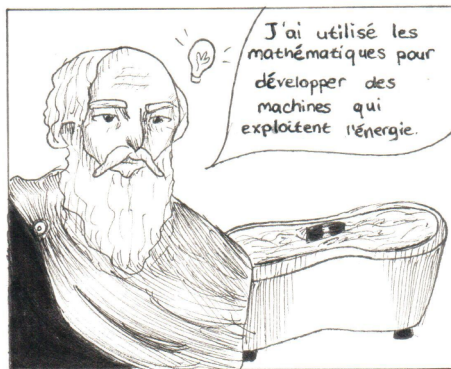 J'ai utilisé les
mathématiques pour
développer des
machines qui
exploitent l'énergie.